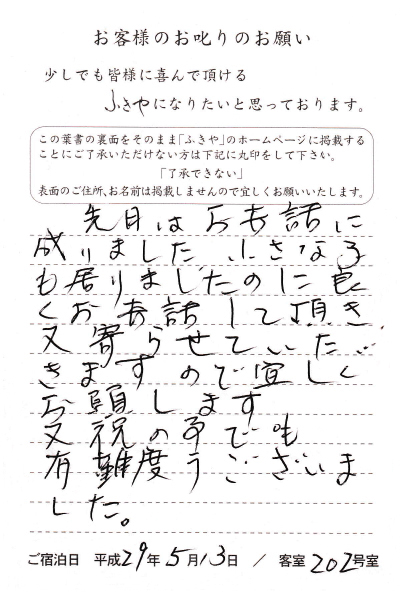 お客様のお叱りのお願い
少しでも皆様に喜んで頂ける
ふきやになりたいと思っております。
この葉書の裏面をそのまま「ふきや」のホームページに掲載する
ことにご了承いただけない方は下記に丸印をして下さい。
「了承できない」
表面のご住所、お名前は掲載しませんので宜しくお願いいたします。
先月はお世話に
成りました 小さな子
も居りましたのに良
くお世話して頂き
又寄らせていただ
きますので宜しく
お願します
又祝の事でも
有難度うございま
した。
ご宿泊日 平成29年5月13日 / 客室202号室